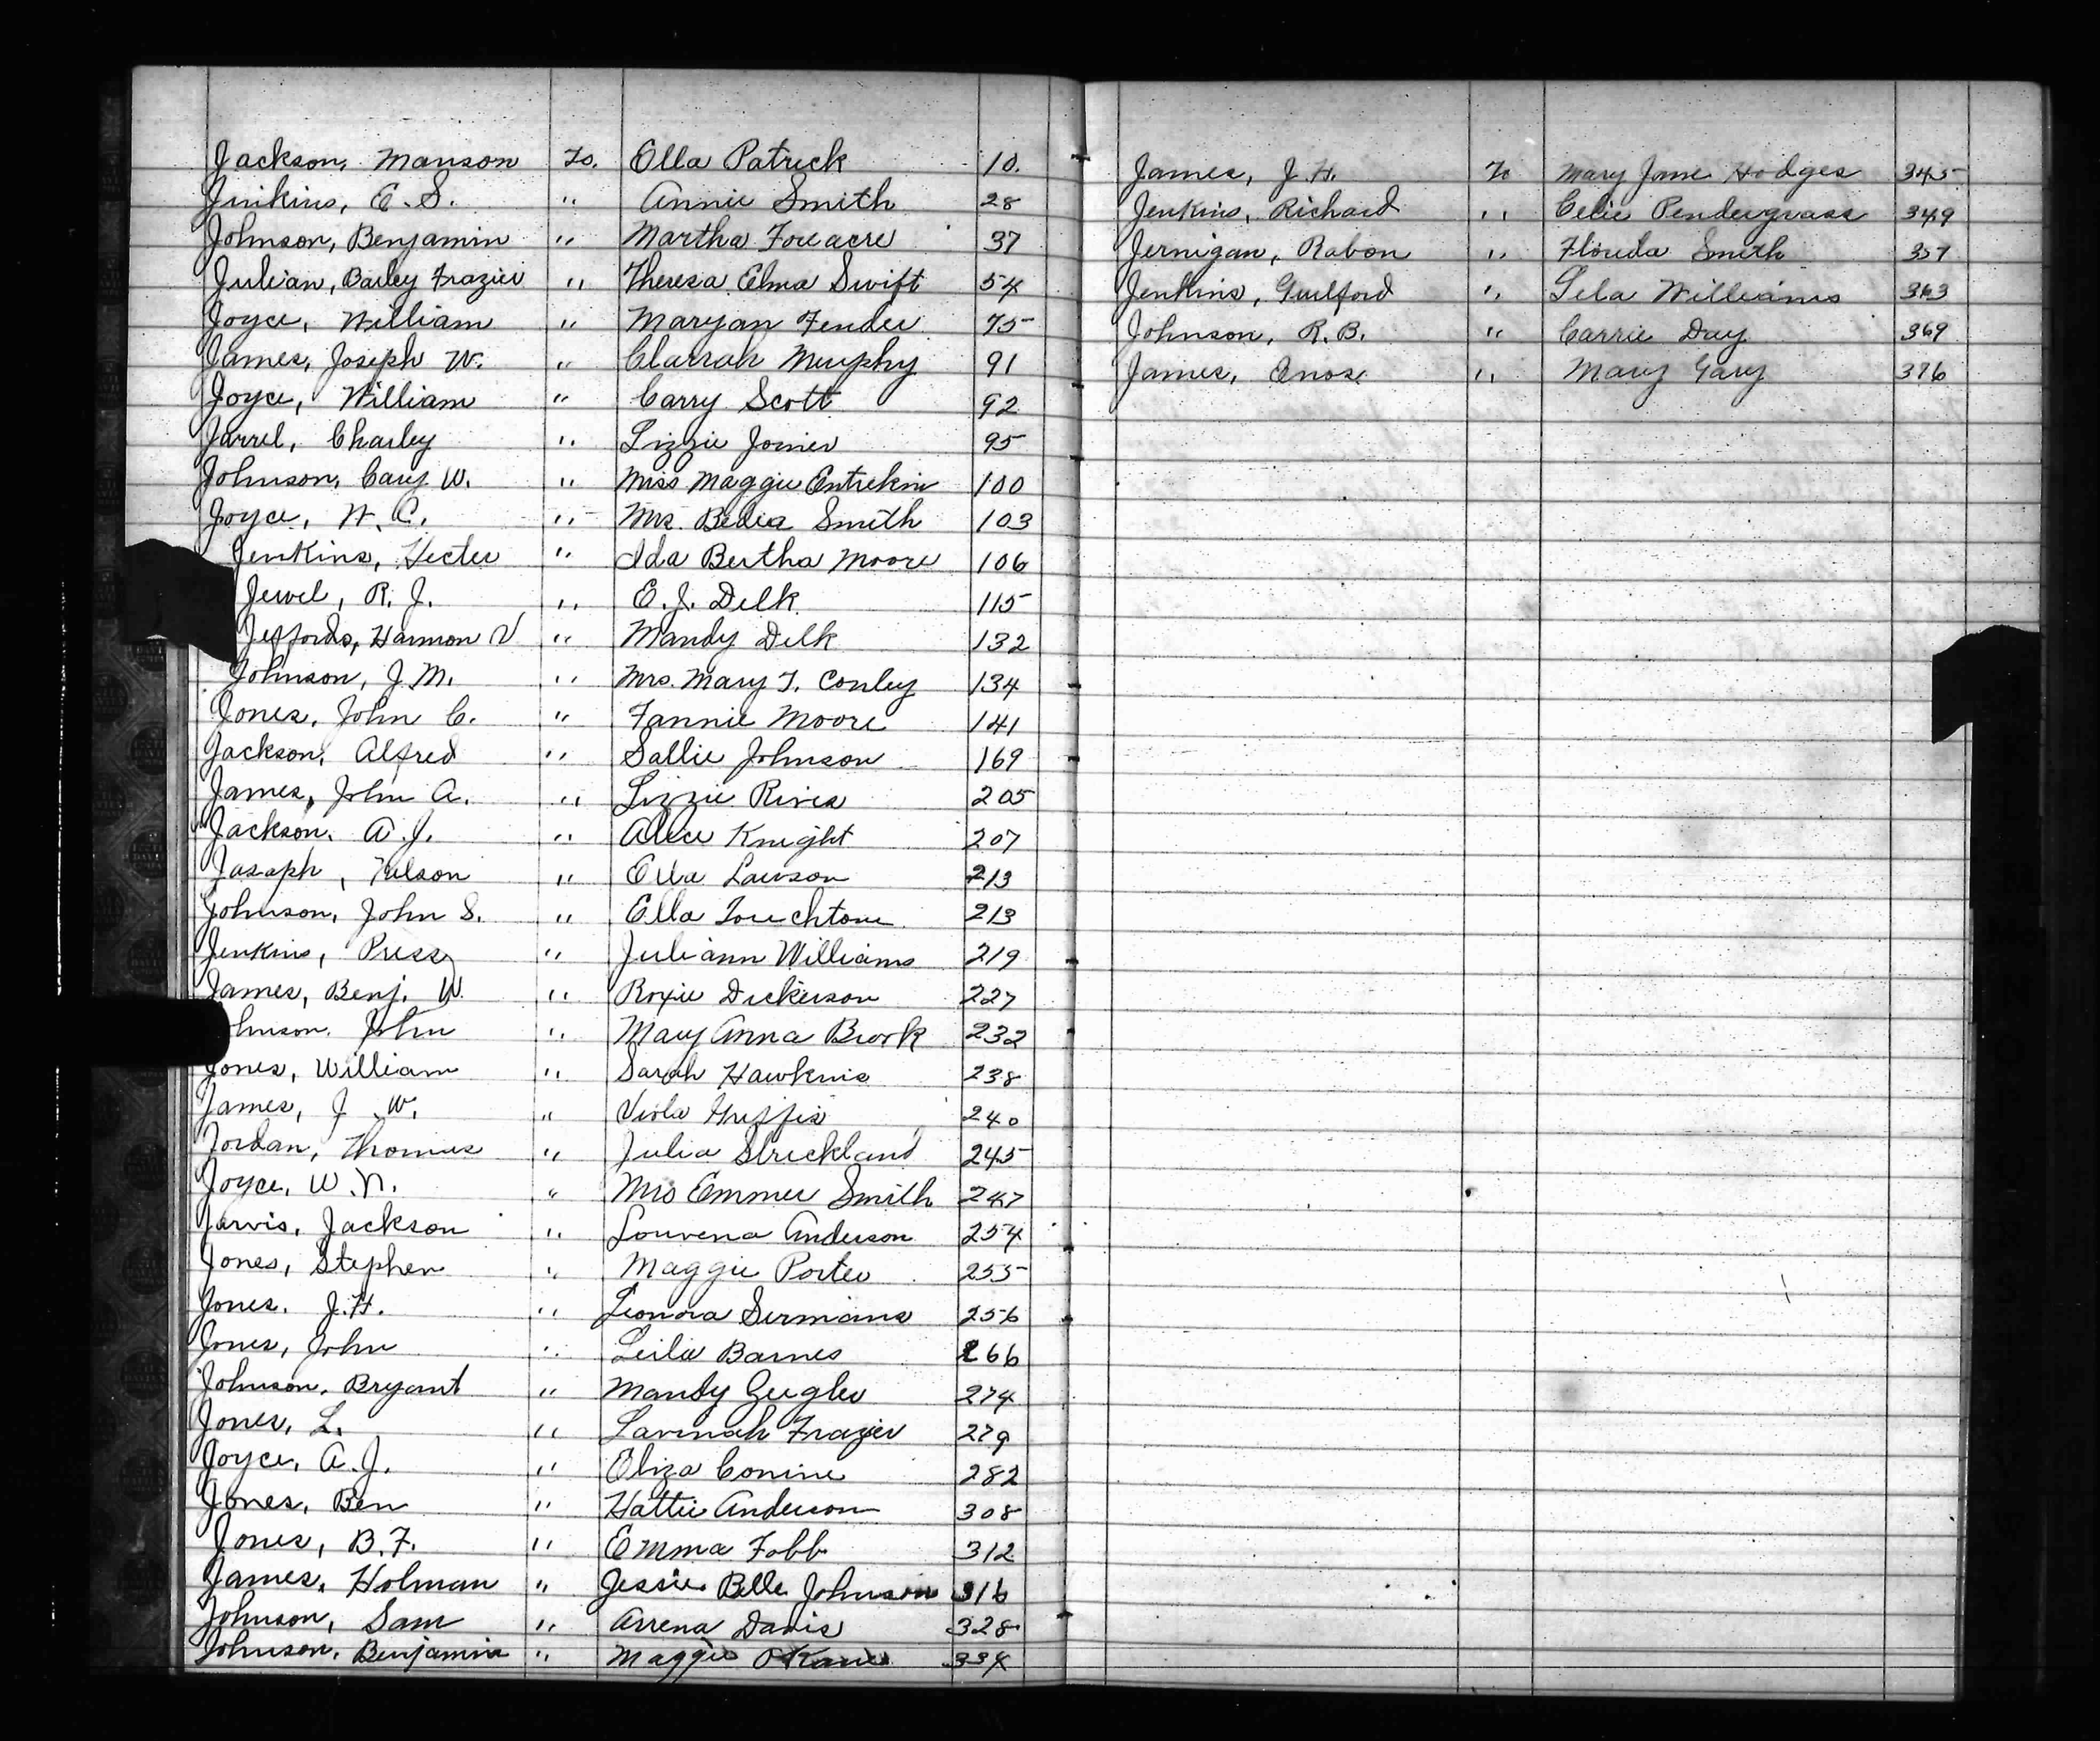 Jackson, Manson To. Ella Patrick 10.
Jinkins, E. S. " Annie Smith 28
Johnson, Benjamin " Martha Foreacre 37
Julian, Barley Frazier " Theresa Elma Swift 54
Joyce, William " Maryan Fender 75
James, Joseph W. " Clarrah Murphy 91
Joyce, William " Carry Scott 92
Jarrel, Charley " Lizzie Joiner 95
Johnson, Cary W. " Miss Maggie Entrekin 100
Joyce, W. C. " Mrs. Bedia Smith 103
Jenkins, Hecter " Ida Bertha Moore 106
Jewel, R. J. " E. J. Delk 115
Jeffords, Harmon V " Mandy Delk 132
Johnson, J. M. " Mrs. Mary T. Conley 134
Jones, John C. " Fannie Moore 141
Jackson, Alfred " Sallie Johnson 169
James, John A. " Lizzie Rives 205
Jackson, A. J. " Alice Knight 207
Jasaph, Tulson " Ella Lawson 213
Johnson, John S. " Ella Touchtone 213
Jenkins, Press " Juliann Williams 219
James, Benj. W. " Roxie Dickerson 227
ohnson, John " Mary Anna Brook 232
Jones, William " Sarah Hawkins 238
James, J W. " Viola Griffis 240
Jordan, Thomas " Julia Strickland 245
Joyce, W. N. " Mrs Emmer Smith 247
Jarvis, Jackson " Louvena Anderson 254
Jones, Stephen " Maggie Porter 255
Jones, J. H. " Leonora Sermans 256
Jones, John " Leila Barnes 266
Johnson, Bryant " Mandy Geigler 274
Jones, L. " Lavinah Frazier 279
Joyce, A. J. " Eliza Conine 282
Jones, Ben " Hattie Anderson 308
Jones, B. F. " Emma Fobb 312
James, Holman " Jessie Belle Johnson 316
Johnson, Sam " Arrena Davis 328
Johnson, Benjamin " Maggie OKane 334
James, J. H. To Mary Jane Hodges 345
Jenkins, Richard " Celie Pendergrass 349
Jernigan, Rabon " Florida Smith 357
Jenkins, Guilford " Lela Williams 363
Johnson, R. B. " Carrie Day 369
James, Enos " Mary Gary 376